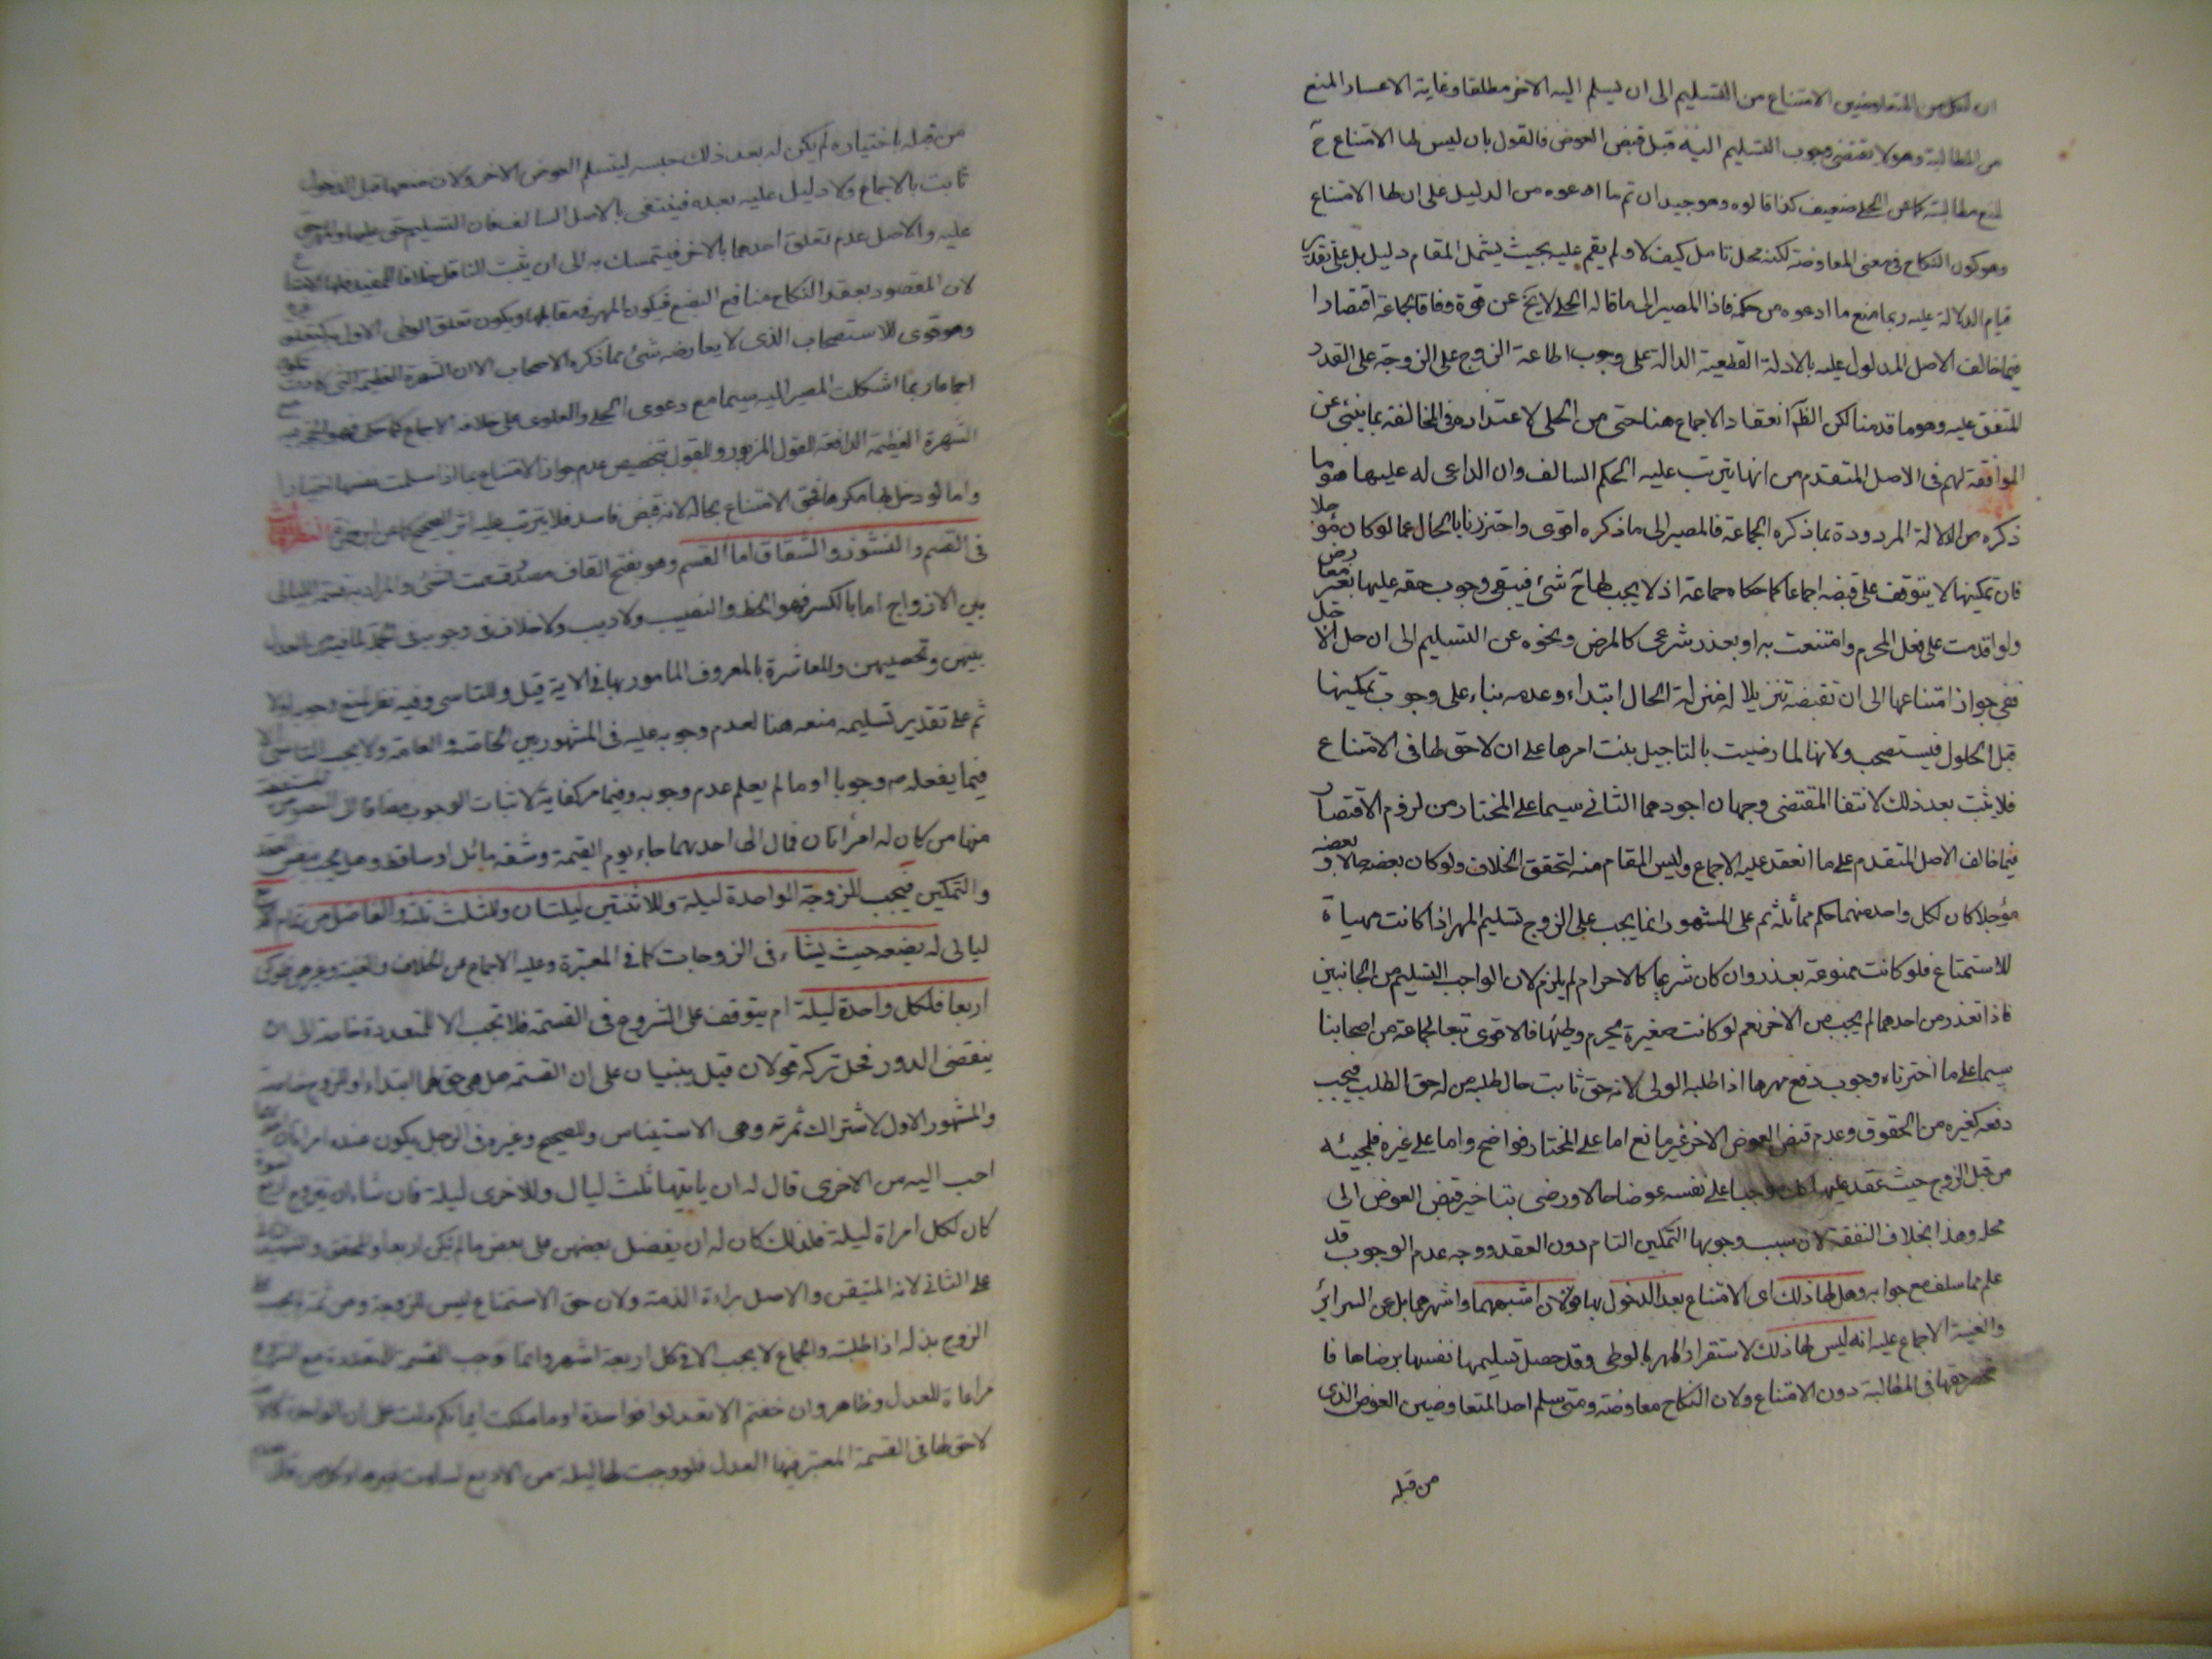 ان لكل من المتعاوضين الامتناع من التسليم الى ان يسلم اليه الاخر مطلقا وغاية الاعسار المنع
من المطالبة وهو لا يقتضى وجوب التسليم اليه قبل قبض العوض فالقول بان ليس لها الامتناع ح
لمنع مطالبته كما عن الحلى ضعيف كذا قالوه وهو جيد ان تم ما ادعوه من الدليل على ان لها الامتناع
وهو كون النكاح فى معنى المعاوضة لكنه محل تامل كيف لا ولم يقم عليه بحيث يشمل المقام دليل بل على تقدير
قيام الدلالة عليه ربما منع ما ادعوه من حكمه فاذا المصير الى ما قاله الحلى لا يخ عن قوة وفاقا لجماعة اقتصارا
فيما خالف الاصل المدلول عليه بالادلة القطعية الدالة على وجوب اطاعة الزوج على الزوجة على القدر
المتفق عليه وهو ما قدمنا لكن الظ انعقاد الاجماع هنا حتى من الحلى لاعتذاره فى المخالفة بما ينبئ عن
الموافقة لهم فى الاصل المتقدم من انها يترتب عليه الحكم السالف وان الداعى له عليها هو ما
ذكره من الدلالة المردودة بما ذكره الجماعة فالمصير الى ما ذكره اقوى واحترزنا بالحال عما لو كان مؤجلا
فان تمكينها لا يتوقف على قبضه اجماعا كما حكاه جماعة اذ لا يجب لها ح شئ فيبقى وجوب حقه عليها بغير معارض
ولو اقدمت على فعل المحرم وامتنعت به او بعذر شرعى كالمرض ونحوه عن التسليم الى ان حل الاجل
ففى جواز امتناعها الى ان تقبضه تنزيلا له منزلة الحال ابتداء وعدمه بناء على وجوب تمكينها
قبل الحلول فيستصحب ولانها لما رضيت بالتاجيل بنت امرها على ان لا حق لها فى الامتناع
فلا يثبت بعد ذلك لانتفا المقتضى وجهان اجودهما الثانى سيما على المختار من لزوم الاقتصار
فيما خالف الاصل المتقدم على ما انعقد عليه الاجماع وليس المقام منه لتحقق الخلاف ولو كان بعضه حالا وبعضه
مؤجلا كان لكل واحد منهما حكم مماثله ثم على المشهور انما يجب على الزوج تسليم المهر اذا كانت مهياة
للاستمتاع فلو كانت ممنوعة بعذر وان كان شرعيا كالاحرام لم يلزم لان الواجب التسليم من الجانبين
فاذا تعذر من احدهما لم يجب من الاخر نعم لو كانت صغيرة يحرم وطئها فالاقوى تبعا لجماعة من اصحابنا
سيما على ما اخترناه وجوب دفع مهرها اذا طلبه الولى لانه حق ثابت حال طلبه من له حق الطلب فيجب
دفعه كغيره من الحقوق وعدم قبض العوض الاخر غير مانع اما على المختار فواضح واما على غيره فلمجيئه
من قبل الزوج حيث عقد عليها كك موجبا على نفسه عوضا حالا ورضى بتاخير قبض العوض الى
محله وهذا بخلاف النفقة لان سبب وجوبها التمكين التام دون العقد ووجه عدم الوجوب قد
علم مما سلف مع جوابه وهل لها ذلك اى الامتناع بعد الدخول بها قولان اشبههما واشهرهما بل عن السرائر
والغنية الاجماع عليه انه ليس لها ذلك لاستقرار المهر بالوطى وقد حصل تسليمها نفسها برضاها فا
نحصر حقها فى المطالبة دون الامتناع ولان النكاح معاوضة ومتى سلم احد المتعاوضين العوض الذى
من قبله
من قبله باختياره لم يكن له بعد ذلك حبسه ليتسلم العوض الاخر ولان منعها قبل الدخول
ثابت بالاجماع ولا دليل عليه بعده فينتفى بالاصل السالف فان التسليم حق عليها والمهر حق
عليه والاصل عدم تعلق احدهما بالاخر فيتمسك به الى ان يثبت الناقل خلافا للمفيد
لان المقصود بعقد النكاح منافع البضع فيكون المهر فى مقابلها ويكون تعلق الوطى الاول كتعلق غيره
وهو قوى للاستصحاب الذى لا يعارضه شئ مما ذكره الاصحاب الا ان الشهرة العظيمة التى كادت تكون
اجماعا ربما اشكلت المصير اليه سيما مع دعوى الحلى والعلوى على خلافه الاجماع كما حكى
الشهرة العظيمة الدافعة للقول المزبور وللقول بتخصيص عدم جواز الامتناع بما اذا سلمت نفسها اختيارا
واما لو دخل بها مكرها فحق الامتناع بحاله لانه قبض فاسد فلا يترتب عليه اثر الصحيح كما عن ابن حمزة
فى القسم والنشوز والشقاق اما القسم وهو بفتح القاف مصدر قسمت الشئ والمراد به قسمة الليالى
بين الازواج اما بالكسر فهو الحظ والنصيب ولا ريب ولا خلاف فى وجوبه فى الجملة لما فيه من العدل
بينهن وتحصينهن وللمعاشرة بالمعروف المامور بها فى الاية قيل وللتاسى وفيه نظر لمنع وجوبه اولا
ثم على تقدير تسليمه منعه هنا لعدم وجوبه عليه فى المشهور بين الخاصة والعامة ولا يجب التاسى الا
فيما يفعله ص وجوبا او ما لم يعلم عدم وجوبه وفيما مر كفاية لاثبات الوجوب مضافا الى النصوص المستفيضة
منها من كان له امرأتان فمال الى احدهما جاء يوم القيمة وشقه مائل او ساقط وهل يجب بنفس العقد
والتمكين فيجب للزوجة الواحدة ليلة وللاثنتين ليلتان وللثلث ثلث والفاضل من تمام الاربع
ليالى له يضعه حيث يشاء فى الزوجات كما فى المعتبرة وعليه الاجماع عن الخلاف والغنية وغيرهما ولو كن
اربعا فلكل واحدة ليلة ام يتوقف على الشروع فى القسمة فلا تجب الا للمتعددة خاصة الى ان
ينقضى الدور فحل تركه قولان قيل يبنيان على ان القسمة هل هى حق لهما ابتداء او للزوج خاصة
والمشهور الاول لاشتراك ثمرته وهى الاستيناس وللصحيح وغيره فى الرجل يكون عنده امرأتان احدهما
احب اليه من الاخرى قال له ان ياتيها ثلث ليال وللاخرى ليلة فان شاء ان يتزوج اربع نسوة
كان لكل امراة ليلة فلذلك كان له ان يفضل بعضهن على بعض ما لم يكن اربعا وللمحقق
على الثانى لانه المتيقن والاصل براءة الذمة ولان حق الاستمتاع ليس للزوجة ومن ثمة لم يجب على
الزوج بذله اذا طلبته والجماع لا يجب الا فى كل اربعة اشهر وانما توجب القسم للمتعددة مع الشروع
مراعاة للعدل وظاهر وان خفتم الا تعدلوا فواحدة او ما ملكت ايمانكم دلت على ان الواحدة كالامة
لا حق لها فى القسمة المعتبر فيها العدل فلو وجبت لها ليلة من الاربع لساوت غيرها